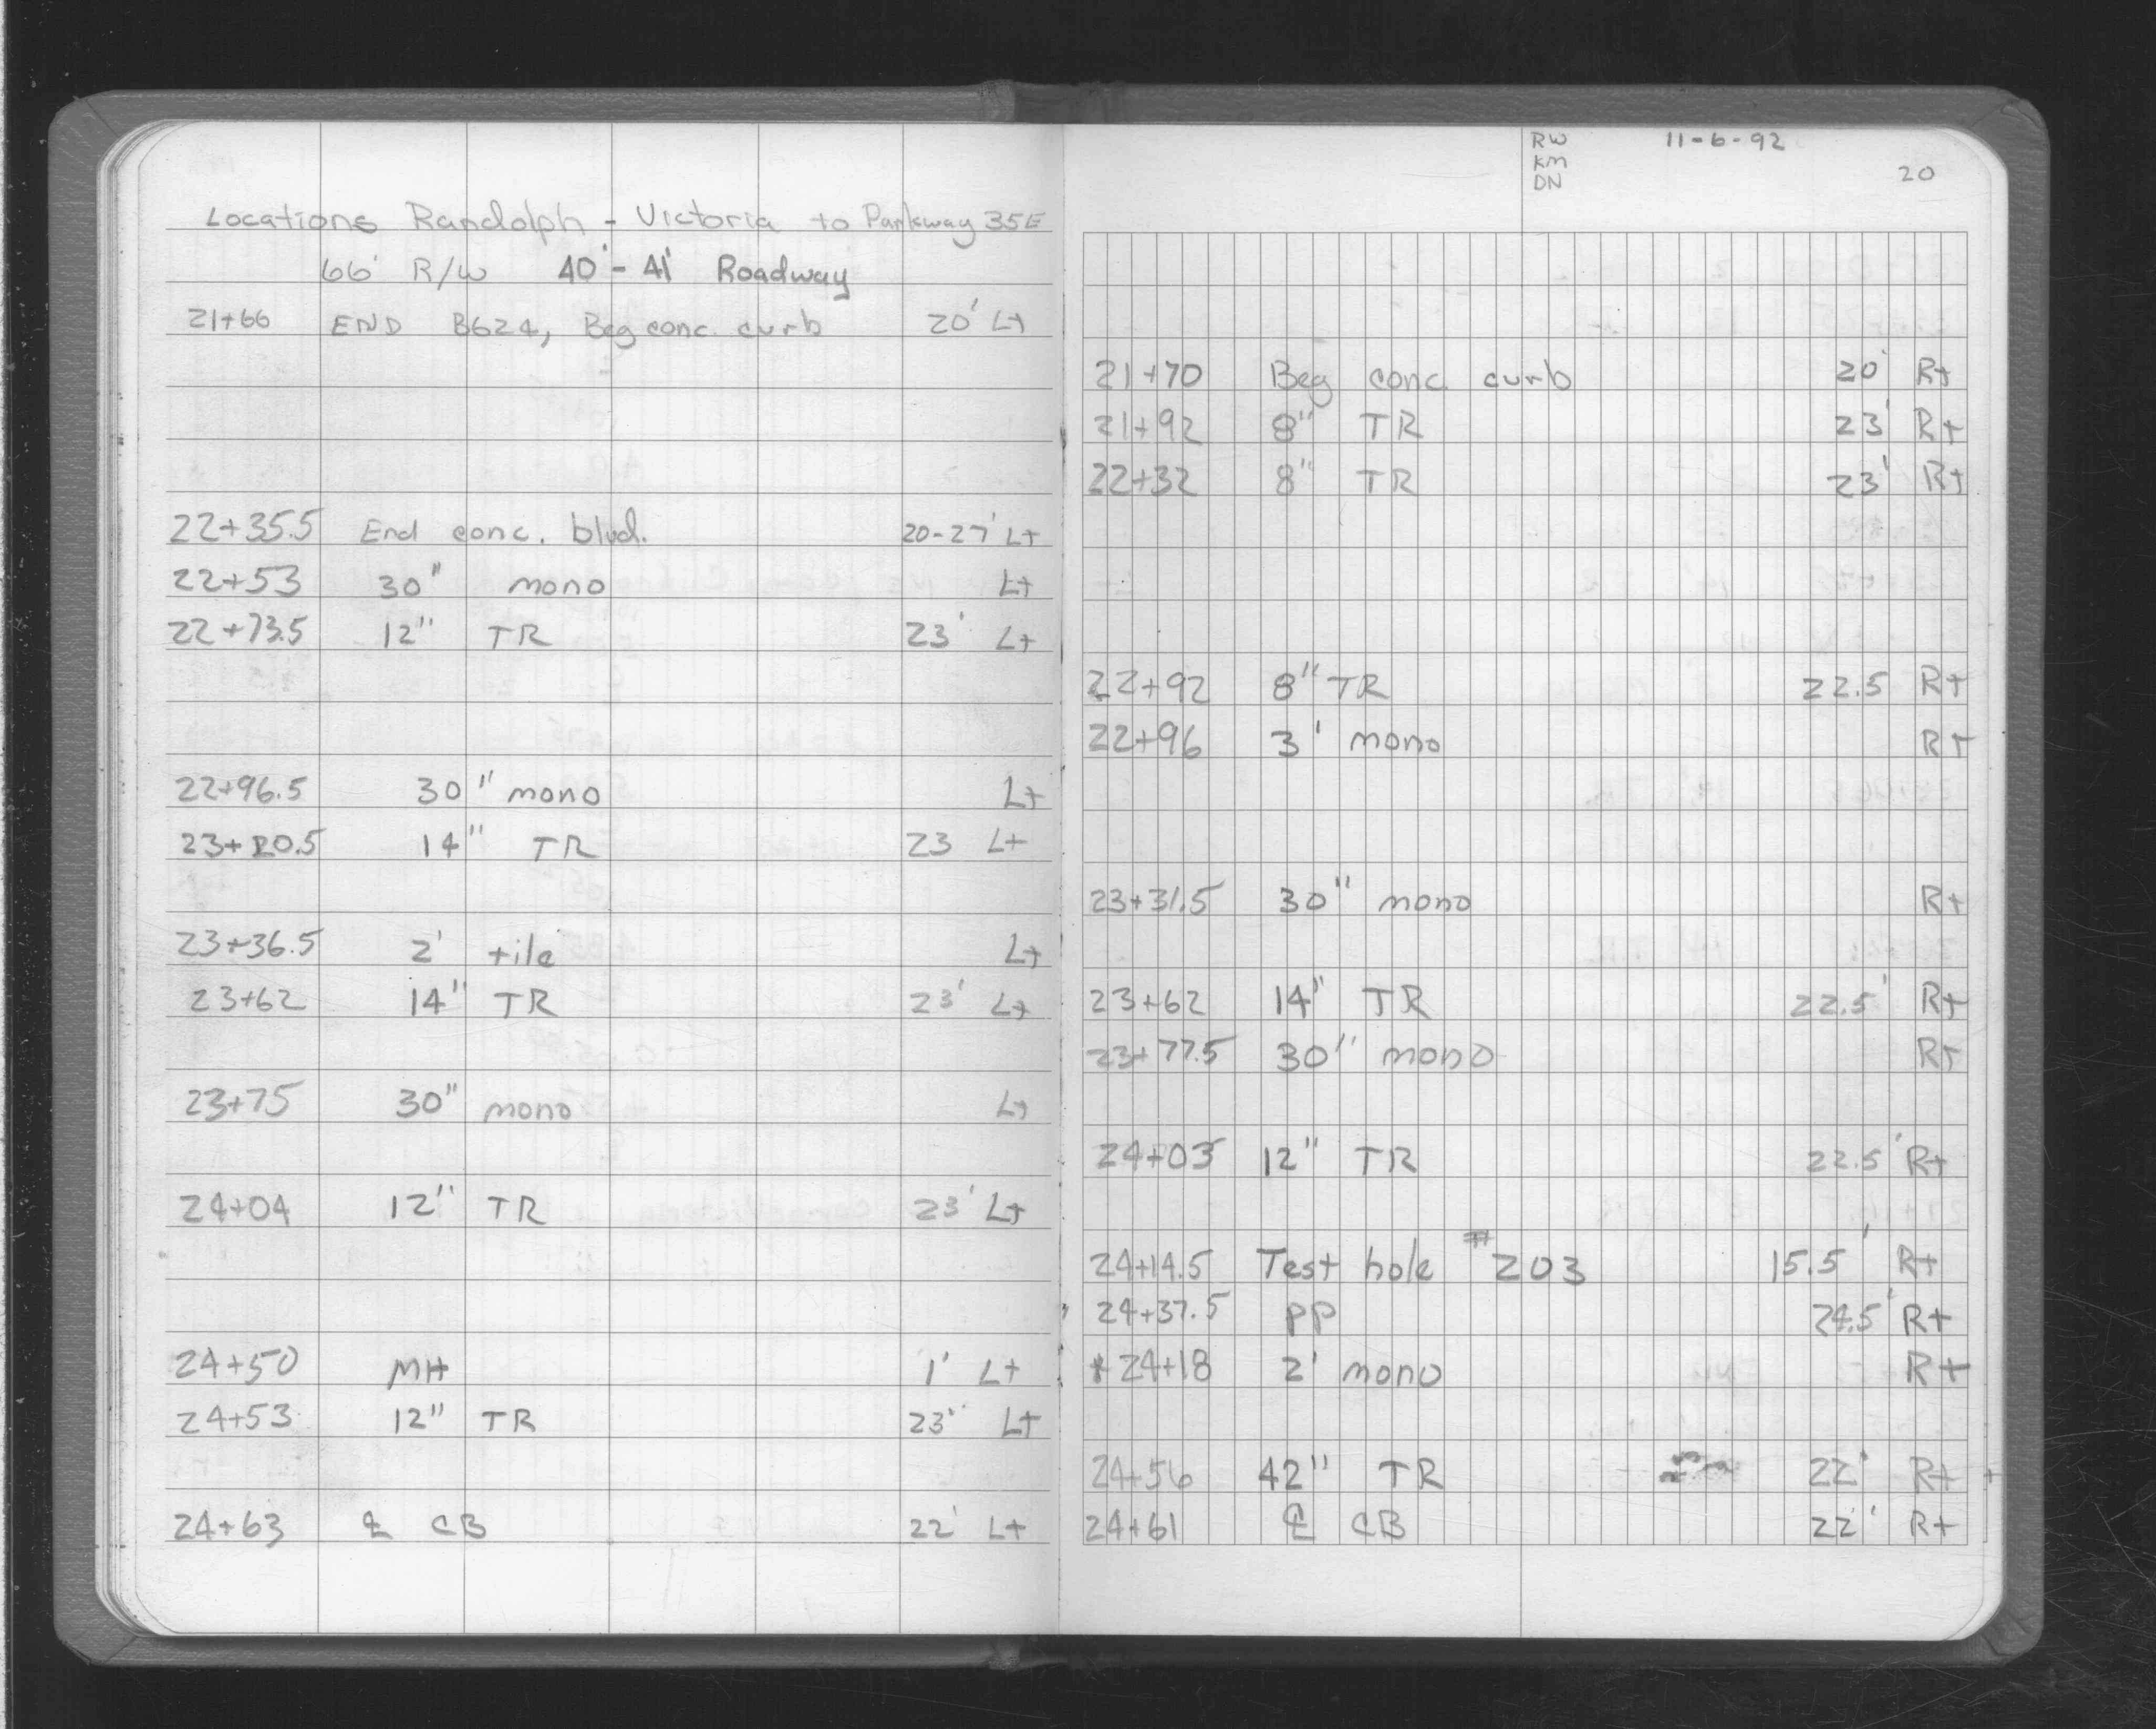 Locations Randolph - Victoria to Parkway 35E
66' R/W 40'- 41' Roadway
21+66 END B624, Beg conc. curb 20' Lt
22+35.5 End conc. blvd. 20-27' Lt
22+53 30" mono Lt
22+73.5 12" TR 23' Lt
22+96.5 30" mono Lt
23+20.5 14" TR 23 Lt
23+36.5 2' tile Lt
23+62 14" TR 23' Lt
23+75 30" mono Lt
24+04 12" TR 23' Lt
24+50 MH 1' Lt
24+53 12" TR 23' Lt
24+63 ℄ CB 22' Lt
RW 11-6-92
KM
DN 20
21+70 Beg conc. curb 20' Rt
21+92 8" TR 23' Rt
22+32 8" TR 23' Rt
22+92 8" TR 22.5 Rt
22+96 3' mono Rt
23+31.5 30" mono Rt
23+62 14" TR 22.5' Rt
23+77.5 30" mono Rt
24+03 12" TR 22.5' Rt
24+14.5 Test hole #203 15.5' Rt
24+37.5 PP 24.5' Rt
*24+18 2' mono Rt
24+56 42" TR 22' Rt
24+61 ℄ CB 22' Rt